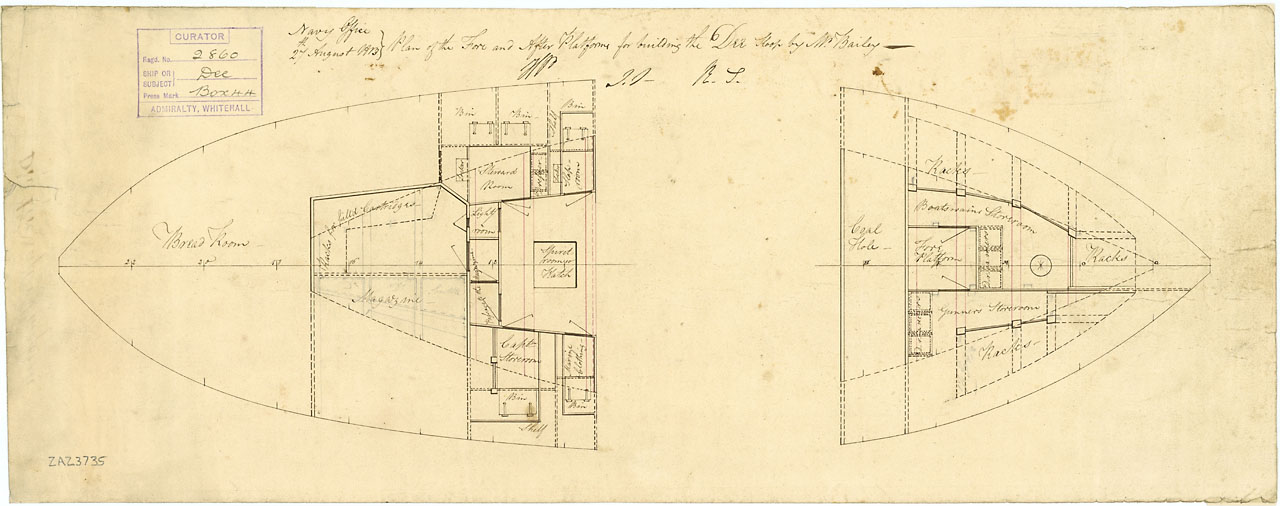 CURATOR
Regd. No. 2860
SHIP OR SUBJECT } Dee
Press Mark Box 44
ADMIRALTY, WHITEHALL
Navy Office
27th August 1813 } Plan of the Fore and After Platforms for building the Dee Sloop by Mr Bailey
R. S.
Bread Room
22
20
18
16
14
Racks for filled Cartridges
Magazine
Bin
Bin
Bin
Shelf
Steward Room
Slop room
Light room
Passage to Magazine
Spirit room Hatch
Capts Storeroom
Bin
Shelf
Marine Clothing
Bin
Coal Hole
Racks
Boatswains Storeroom
Fore Platform
Racks
Gunners Storeroom
Racks
ZAZ3735